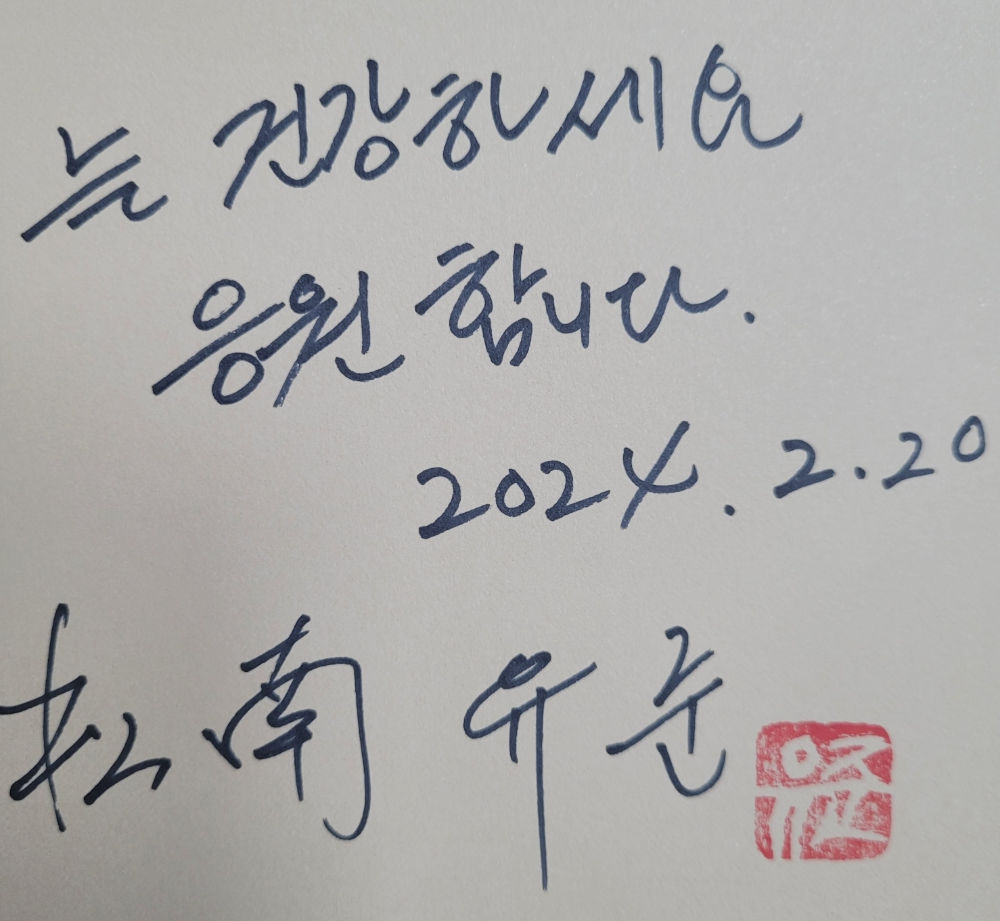 늘 건강하세요
응원 합니다.
2024.2.20
松南 유준
유준